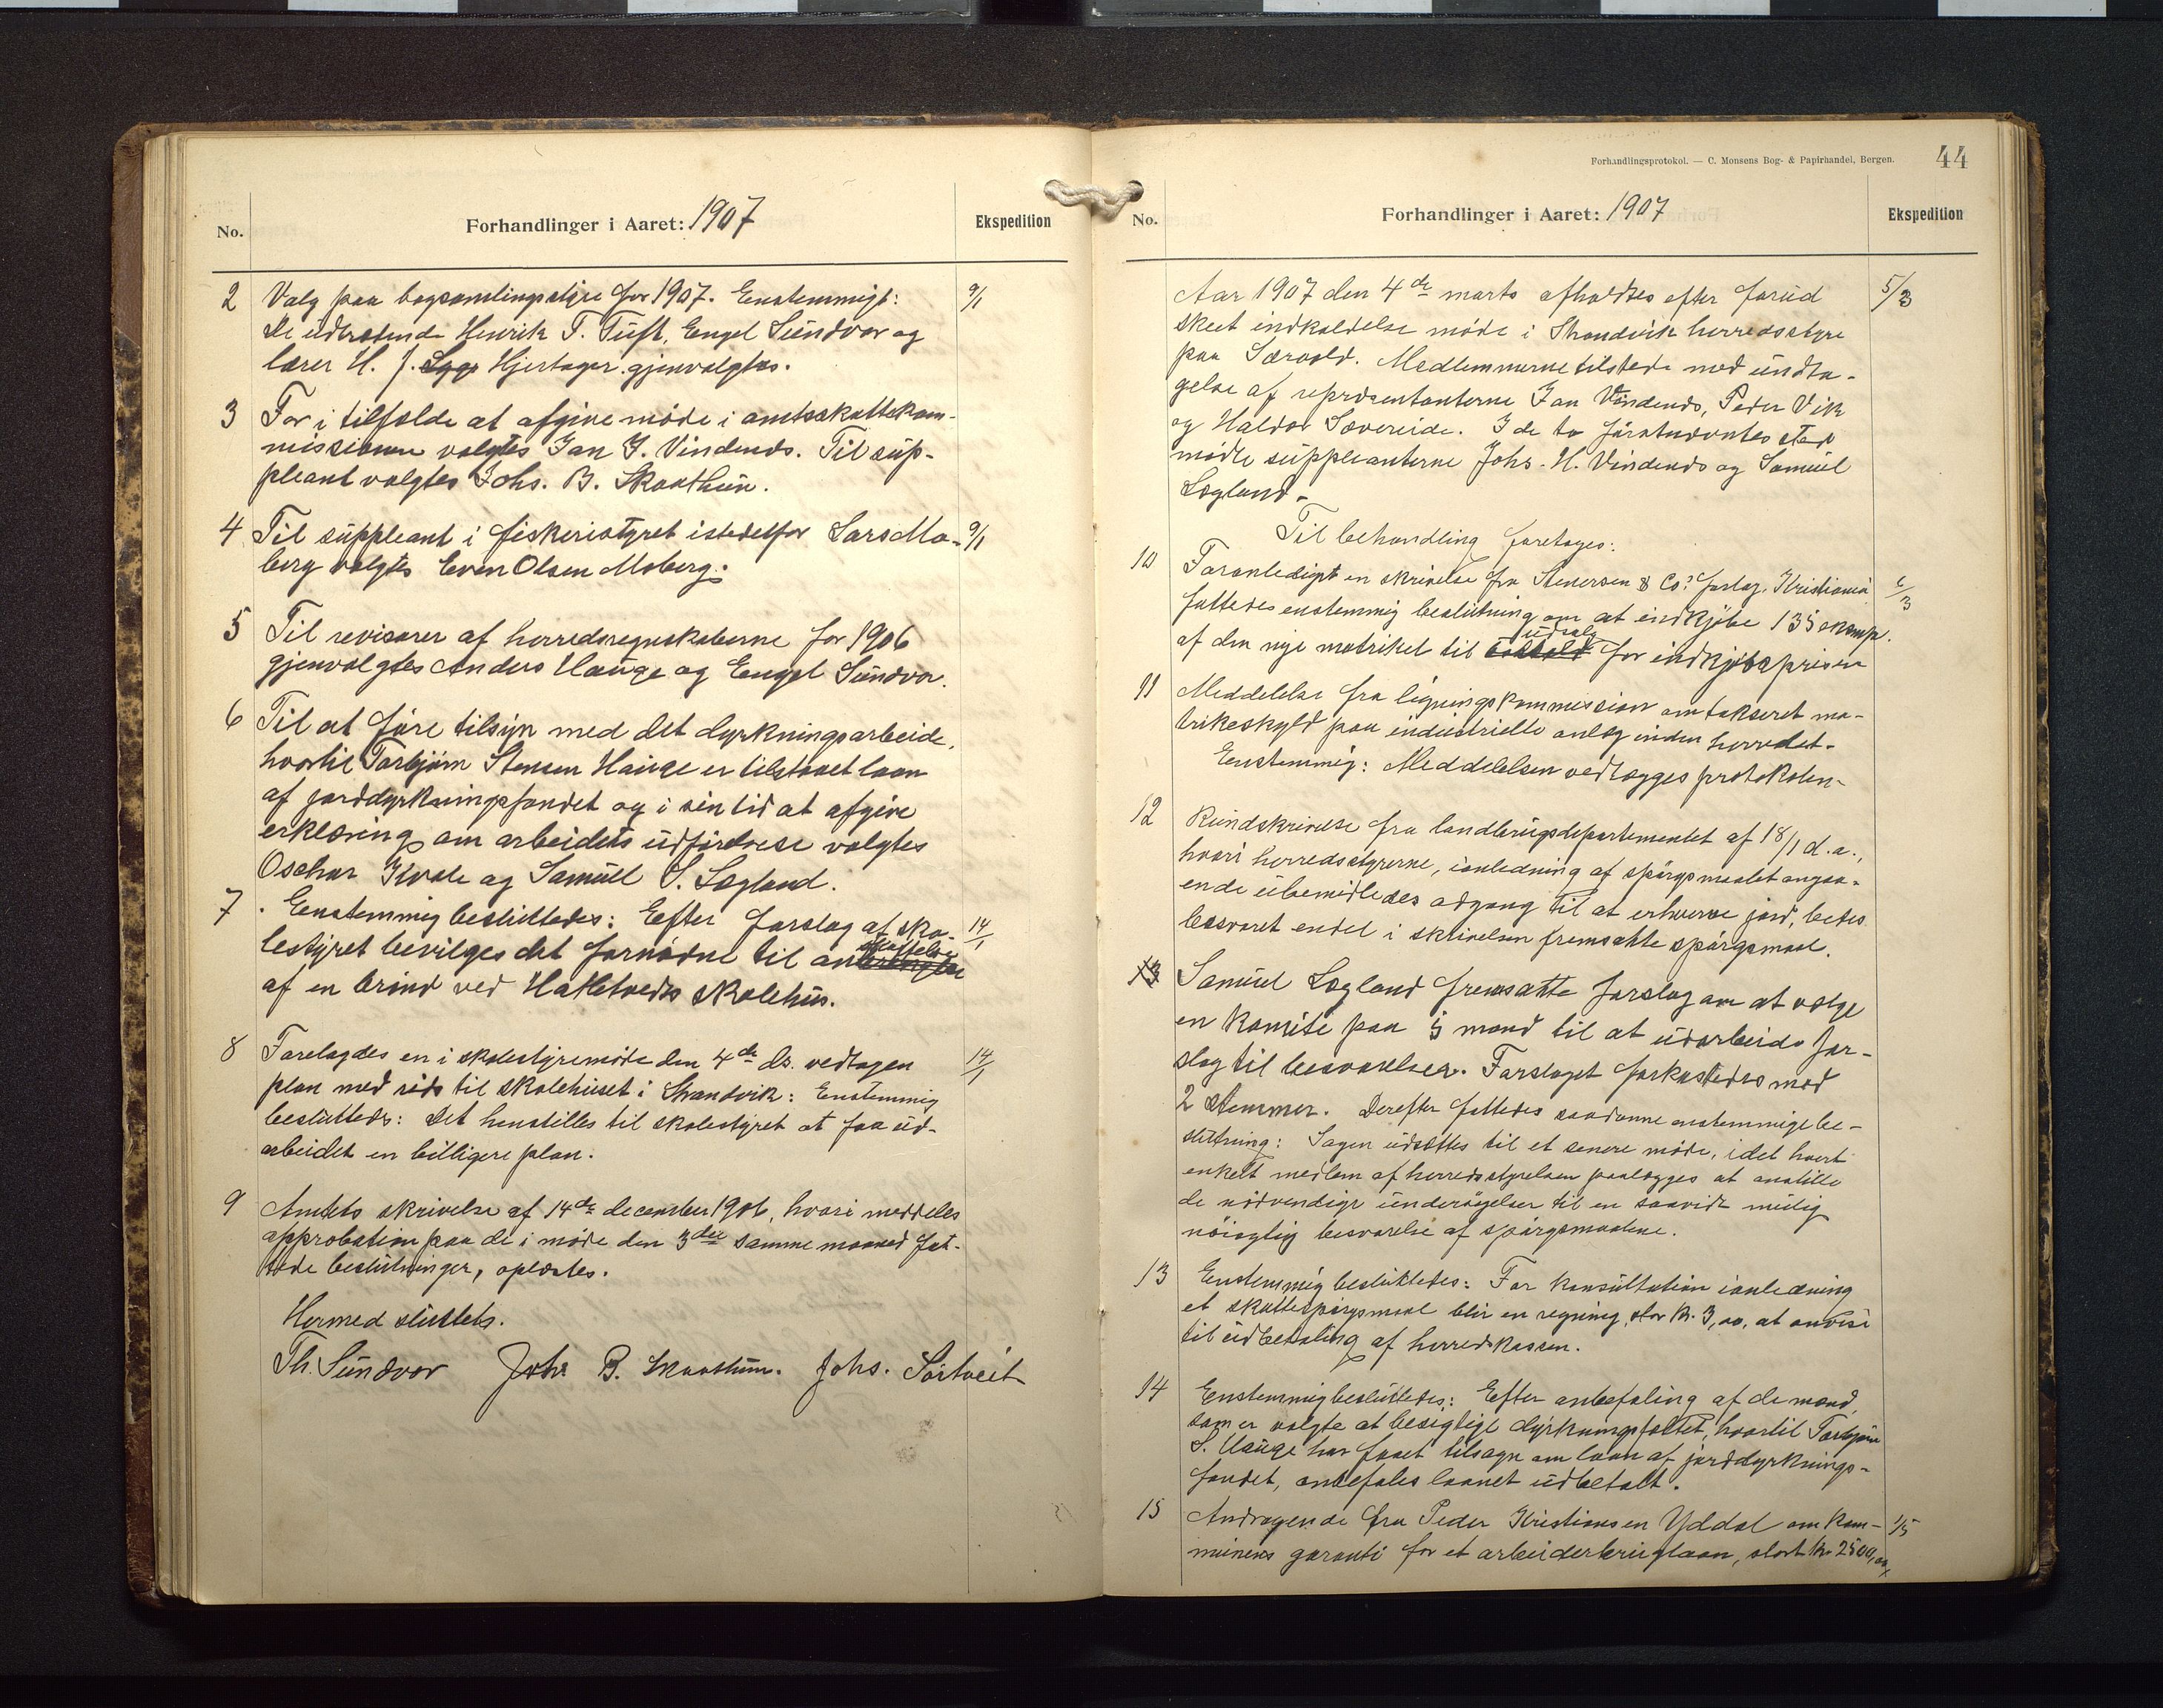 No.
Forhandlinger i Aaret: 1907
Ekspedition
2 Valg paa bogsamlingsstyre for 1907. Enstemmigt: 9/1
De udtrædende Henrik T. Tuft, Engel Sundvor og
lærer H. J. Hjertager gjenvalgtes.
3 For i tilfælde at afgive møde i amtsskattekom-
missionen valgtes Jan J. Vindenes. Til sup-
pleant valgtes Johs. B. Skaathun.
4 Til suppleant i fiskeristyret istedetfor Lars Mo- 9/1
berg valgtes Even Olsen Moberg.
5 Til revisorer af herredsregnskaberne for 1906
gjenvalgtes Anders Hauge og Engel Sundvor.
6 Til at føre tilsyn med det dyrkningsarbeide,
hvortil Torbjørn Stensen Hauge er tilstaaet laan
af jorddyrkningsfondet og i sin tid at afgive
erklæring om arbeidets udførelse valgtes
Oschar Kvale og Samuel S. Lægland.
7 Enstemmig besluttedes: Efter forslag af sko- 14/1
lestyret bevilges det fornødne til anskaffelse
af en brønd ved Hatletvedts skolehus.
8 Forelagdes en i skolestyremøde den 4de ds. vedtagen 14/1
plan med rids til skolehuset i Strandvik: Enstemmig
besluttedes: Det henstilles til skolestyret at faa ud-
arbeidet en billigere plan.
9 Amtets skrivelse af 14de december 1906, hvori meddeles
approbation paa de i møde den 3die samme maaned fat-
tede beslutninger, oplæstes.
Hermed sluttets.
Th. Sundvor Johs B. Skaathun. Johs. Sørtveit
Forhandlingsprotokol. — C. Monsens Bog- & Papirhandel, Bergen.
44
No.
Forhandlinger i Aaret: 1907
Ekspedition
Aar 1907 den 4de marts afholdtes efter forud 5/3
skeet indkaldelse møde i Strandvik herredsstyre
paa Særvold. Medlemmerne tilstede med undta-
gelse af repræsentanterne Jan Vindenes, Peder Vik
og Haldor Sævereide. I de to førstnævntes sted
mødte suppleanterne Johs. H. Vindenes og Samuel
Lægland.
Til behandling foretoges:
10 Foranlediget en skrivelse fra Steensen & Co's forlag, Kristiania 6/3
fattedes enstemmig beslutning om at indkjøbe 135 eksemp.
af den nye matrikel til udsalg for indkjøbsprisen
11 Meddelelse fra ligningskommission om takseret ma-
trikeskyld paa industrielle anlæg inden herredet.
Enstemmig: Meddelelsen vedlægges protokolen.
12 Rundskrivelse fra landbrugsdepartementet af 18/1 d.a.,
hvori herredsstyrerne, i anledning af spørgsmaalet angaa-
ende ubemidledes adgang til at erhverve jord, bedes
besvaret endel i skrivelsen fremsatte spørgsmaal.
13 Samuel Lægland fremsatte forslag om at vælge
en komite paa 5 mand til at udarbeide for-
slag til besvarelser. Forslaget forkastedes mod
2 stemmer. Derefter fattedes saadanne enstemmige be-
slutning: Sagen udsættes til et senere møde, idet hvert
enkelt medlem af herredsstyrelsen paalægges at anstille
de nødvendige undersøgelser til en saavidt mulig
nøiagtig besvarelse af spørgsmaalene.
13 Enstemmig besluttedes: For konsultation i anledning
et skattespørgsmaal blir en regning, stor kr. 3,00, at anvise
til udbetaling af herredskassen.
14 Enstemmig besluttedes: Efter anbefaling af de mænd
som er valgte at besigtige dyrkningsfeltet, hvortil Torbjørn
S. Hauge har faaet tilsagn om laan af jorddyrknings-
fondet, anbefales laanet udbetalt.
15 Andragende fra Peder Kristiansen Yddal om kom- 1/5
munens garanti for et arbeiderbruglaan, stort kr. 2500,00